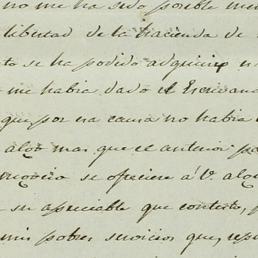 no me ha sido posible
libertad de la Hacienda de
se ha podido adquirir
me habia dado el Escribano
que por esa causa no habia
algo mas que el anterior
negocio se ofreciere á V. algo
su apreciable que contesto,
mis pobres servicios que,